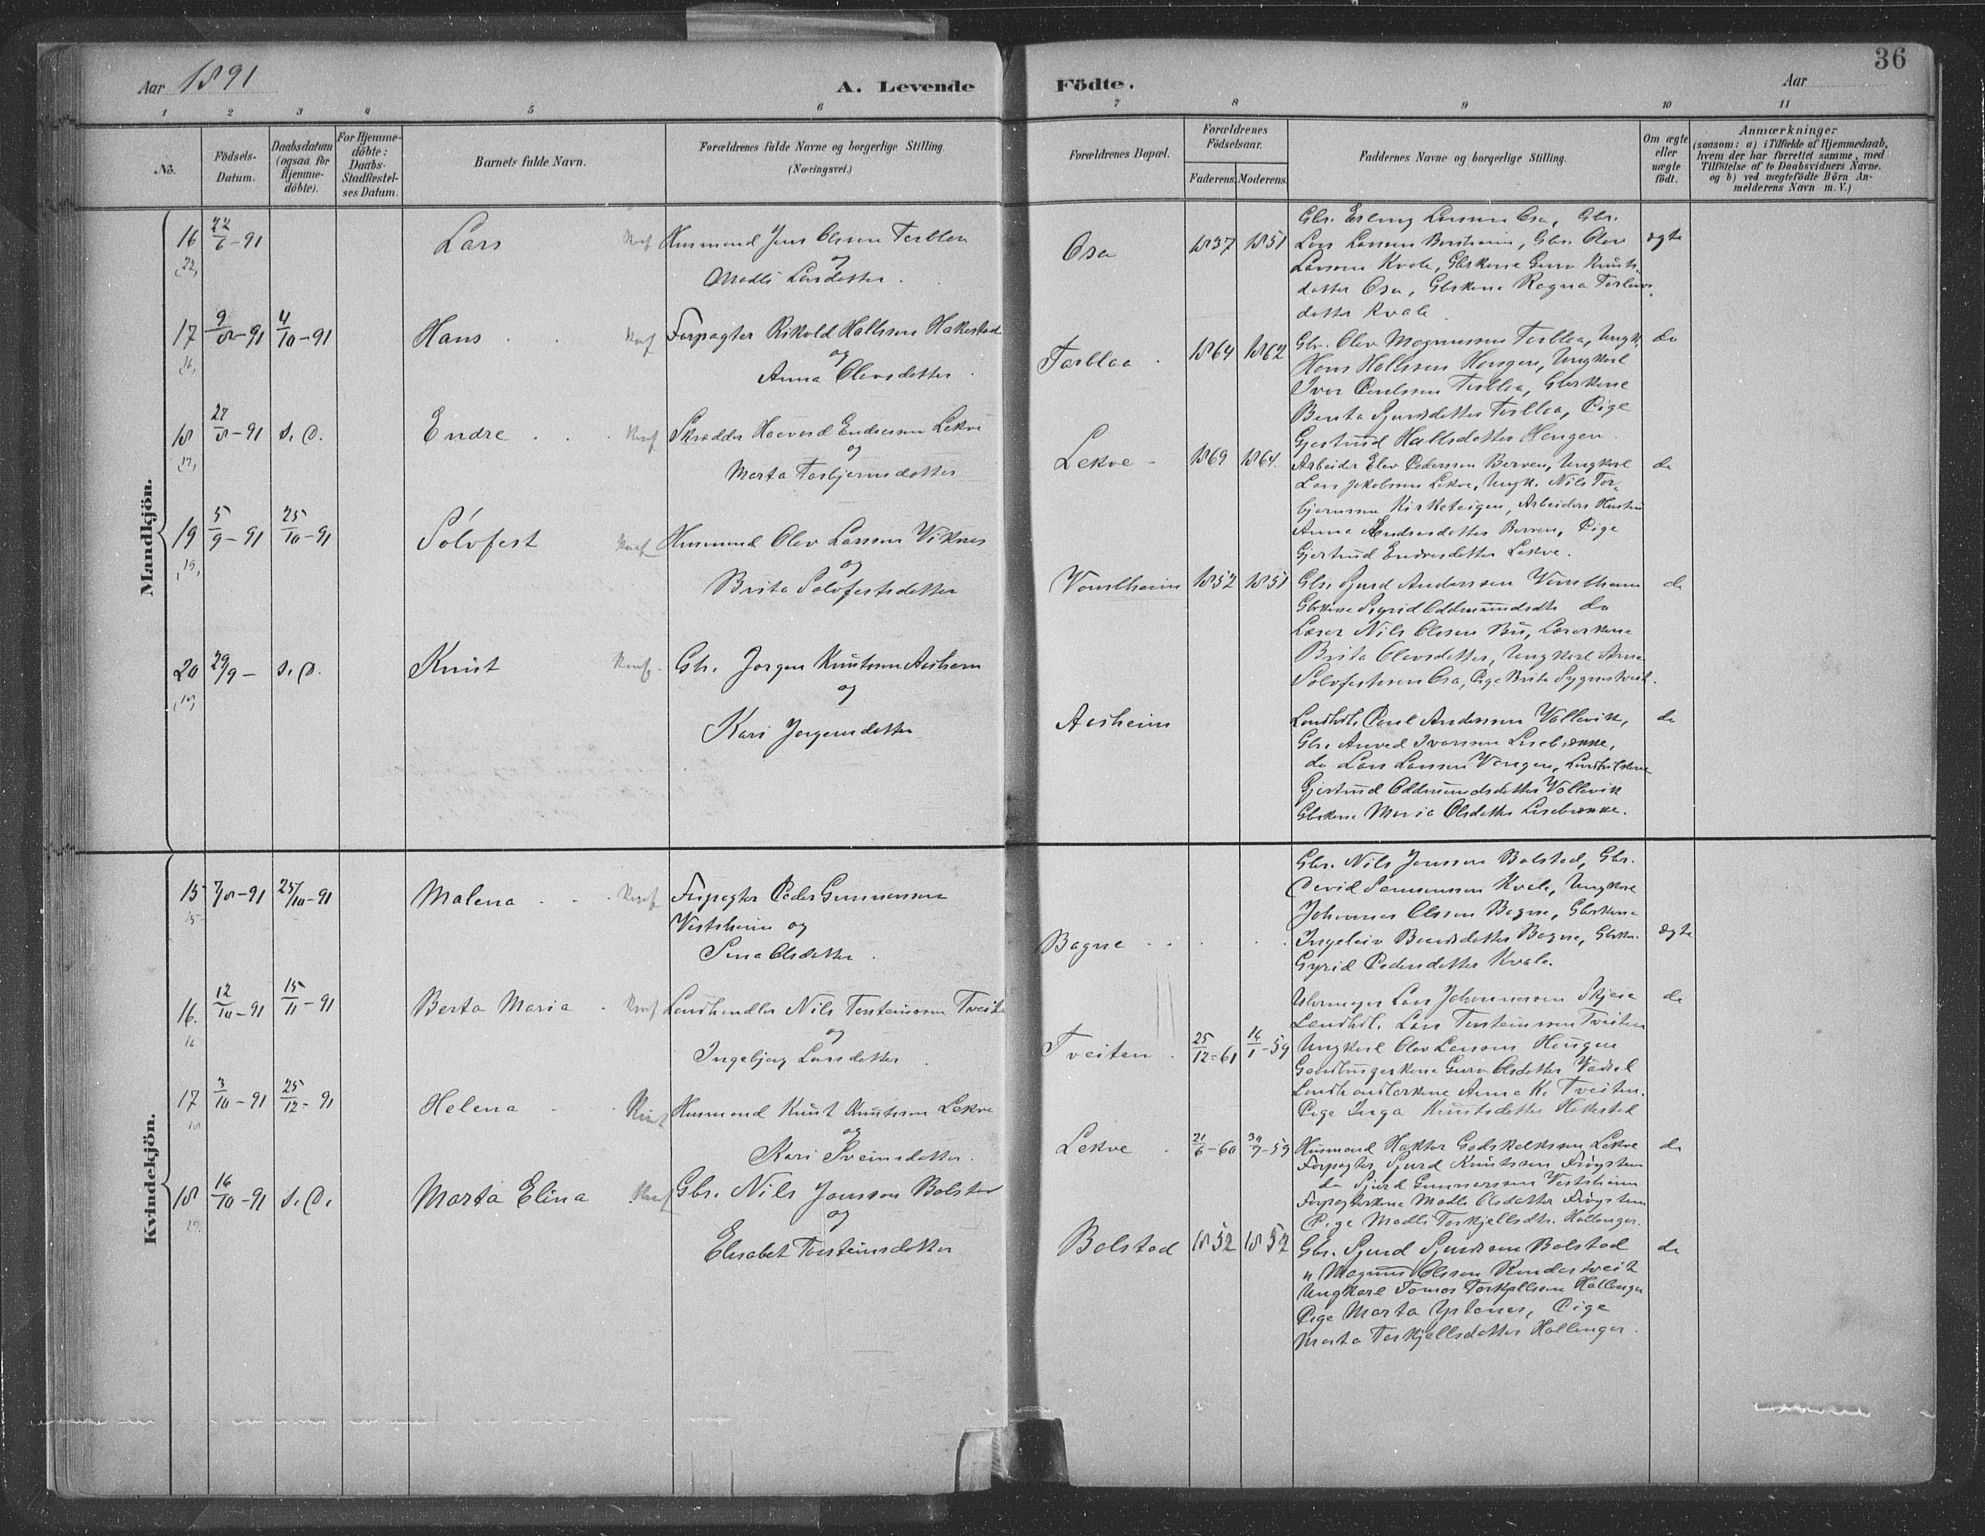 36
Aar 1891
A. Levende Födte.
Aar
1 2 3 4 5 6 7 8 9 10 11
No.
Födsels-Datum.
Daabsdatum (ogsaa for Hjemme-döbte).
For Hjemme-döbte: Daabs-Stadfæstel-ses Datum.
Barnets fulde Navn.
Forældrenes fulde Navne og borgerlige Stilling.
(Næringsvei.)
Forældrenes Bopæl.
Forældrenes Födselsaar.
Faderens. Moderens.
Faddernes Navne og borgerlige Stilling.
Om ægte eller uægte födt.
Anmærkninger
(saasom: a) i Tilfælde af Hjemmedaab,
hvem der har forrettet samme, med
Tilföielse af to Daabsvidners Navne.
og b) ved uægtefödte Börn An-
melderens Navn m. V.)
Mandkjön.
16 22/6-91 Lars Husmand Jens Olsen Torblaa
og
Madli Larsdotter.
Osa 1837 1851 ægte
Gbr. Erling Larssen Osa, Gbr.
Lars Larssen Borsheim, Gbr. Olav
Larssen Kvale, Gbrkone Guro Knuts-
dotter Osa, Gbrkone Ragna Torleivs-
dotter Kvale.
17 9/8-91 4/10-91 Hans Forpagter Rikold Hallssen Hakestad
og
Anna Olavsdotter.
Torblaa 1864 1862 do
Gbr. Olav Magnussen Torblaa, Ungk.
Hans Hallssen Haugen, Ungkarl
Ivar Paulssen Torblaa, Gbrkone
Berita Sjursdotter Torblaa, Pige
Gjertrud Hallsdotter Haugen.
18 27/8-91 s. D. Endre Skrædder Haavard Endressen Lekve
og
Marta Torbjørnsdotter
Lekve 1869 1864. do
Arbeider Elev Pedersen Berven, Ungkarl
Lars Jakobssen Lekve, Ungk. Nils Tor-
bjørnssen Kirketeigen, Arbeiders Hustru
Anna Endresdotter Berven, Pige
Gjertrud Endresdotter Lekve.
19 5/9-91 25/10-91 Solvfest Husmand Olav Larssen Viknes
og
Brita Solvfestsdotter
Vambheim 1852 1851 do
Gbr. Sjurd Anderssen Vambheim
Gbrkone Sigrid Oddmundsdtr do
Lærer Nils Olssen Bu, Lærerkone
Brita Olavsdotter, Ungkarl Arne
Solvfestssen Osa, Pige Brita Sygnestveit.
20 29/9- s. D. Knut Gbr. Jorgen Knutssen Aisheim
og
Kari Jorgensdotter
Aisheim do
Landhdl. Paul Anderssen Vallevik,
Gbr. Amved Ivarssen Lisebrække,
do Lars Larssen Vangen,
Gjertrud Oddmundsdotter Vallevik
Gbrkone Maria Olsdotter Lisebrække.
Kvindekjön.
15 7/8-91 25/10-91 Malena Forpagter Peder Gunnarssen
Vestsheim og
Sena Olsdotter.
Bagne ægte
Gbr. Nils Jonssen Bolstad, Gbr.
David Samsonssen Kvale, Ungkarl
Johannes Olssen Bagne, Gbrkone
Ingeleiv Bundsdotter Bagne, Gbrkn.
Gyrid Pedersdotter Kvale.
16. 12/10-91 15/11-91 Berta Maria Landhandler Nils Torsteinssen Tveite
og
Ingebjørg Larsdotter
Tveiten. 25/12-61 16/1-59 do
Uhrmager Lars Johannessen Skjese
Landhdl. Lars Torsteinssen Tveiten
Ungkarl Olav Larssen Haugen
Guro Olsdotter
Landhandlerkone Anna K. Tveiten.
Pige Inga Knutsdotter Hakestad
17 3/10-91 25/12-91 Helena Husmand Knut Knutssen Lekve
og
Kari Sveinsdotter.
Lekve 21/6-60 do
Husmand Haktor Godskalkssen Lekve
Forpagter Sjurd Knutssen Frøystein
do Sjurd Gunnarssen Vestsheim
Forpagterkone Madli Olsdotter Frøystein
Pige Madli Torkjellsdtr. Hallanger.
18 16/10-91 s. D. Marta Elina Gbr. Nils Jonssen Bolstad
og
Elisabet Torsteinsdotter
Bolstad 1852 1852 do
Gbr. Sjurd Sjurdssen Bolstad
" Magnus Olssen Rondestveit
Ungkarl Tomas Torkjellssen Hallanger
Pige Marta Ystanes, Pige
Marta Torkjellsdotter Hallanger.